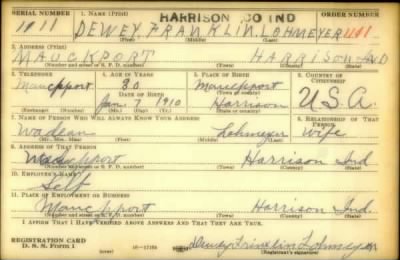 HARRISON CO IND
SERIAL NUMBER 1. NAME (Print) ORDER NUMBER
1011 DEWEY. FRANKLIN. LOHMEYER 1101
(First) (Middle) (Last)
2. ADDRESS (Print)
MAUCKPORT HARRISON IND
(Number and street or R. F. D. number) (Town) (County) (State)
3. TELEPHONE 4. AGE IN YEARS 5. PLACE OF BIRTH 6. COUNTRY OF CITIZENSHIP
Mauckport 30 Mauckport
DATE OF BIRTH (Town or county)
Jan. 7 1910 Harrison U.S.A.
(Exchange) (Number) (Mo.) (Day) (Yr.) (State or country)
7. NAME OF PERSON WHO WILL ALWAYS KNOW YOUR ADDRESS 8. RELATIONSHIP OF THAT PERSON
Wadean Lohmeyer Wife
(Mr., Mrs., Miss) (First) (Middle) (Last)
9. ADDRESS OF THAT PERSON
Mauckport Harrison Ind
(Number and street or R. F. D. number) (Town) (County) (State)
10. EMPLOYER'S NAME
Self
11. PLACE OF EMPLOYMENT OR BUSINESS
Mauckport Harrison Ind.
(Number and street or R. F. D. number) (Town) (County) (State)
I AFFIRM THAT I HAVE VERIFIED ABOVE ANSWERS AND THAT THEY ARE TRUE.
REGISTRATION CARD
D. S. S. Form 1 16-17105 Dewey Franklin Lohmeyer
(Registrant's signature)